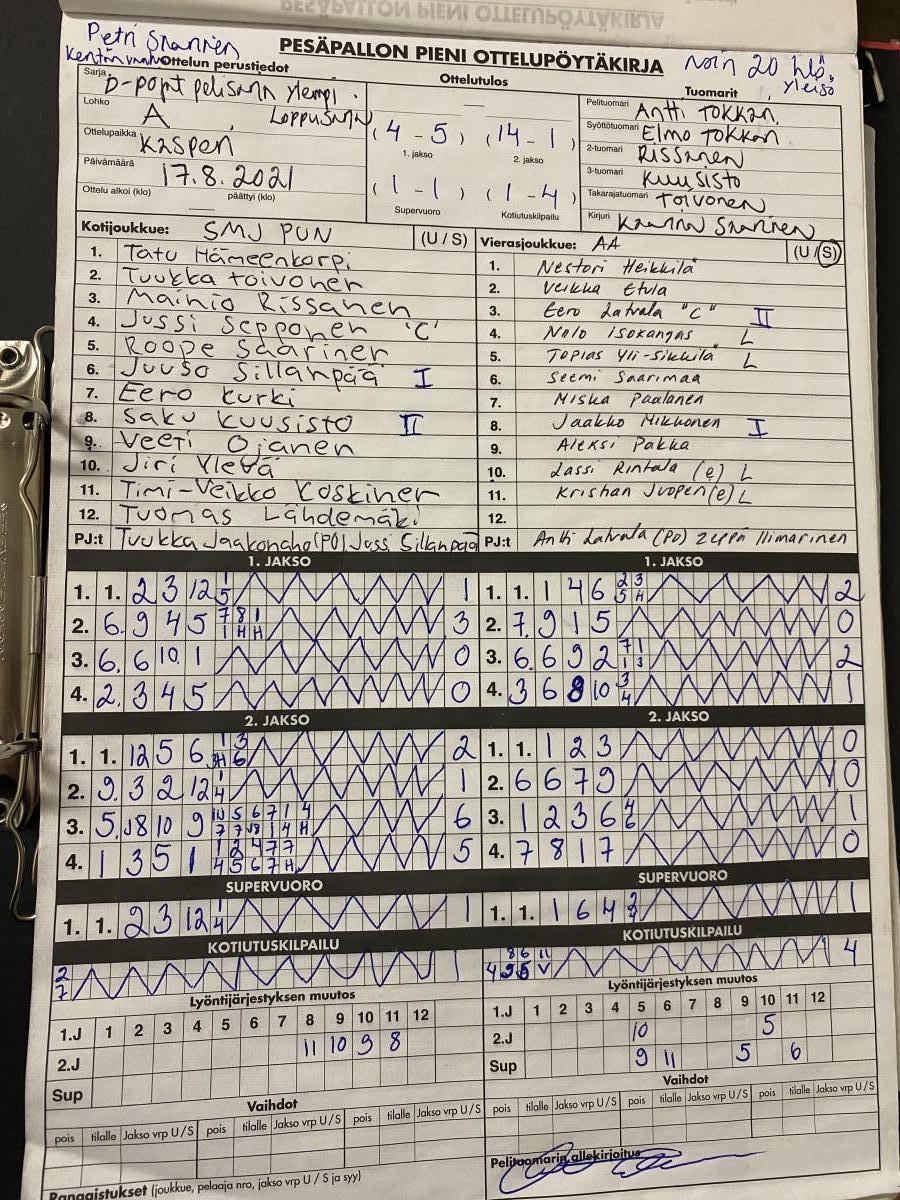 PESÄPALLON PIENI OTTELUPÖYTÄKIRJA
Petri Saarinen
Noin 20 hlö.
yleisö
Ottelun perustiedot
Ottelutulos
Tuomarit
Sarja
D-pojat
Lohko A
Loppusarja
Ottelupaikka Kaspen
Päivämäärä 17.8.2021
Ottelu alkoi (klo) päättyi (klo)
(4 - 5) (14 - 1)
1. jakso 2. jakso
(1 - 1) (1 - 4)
Supervuoro Kotiutuskilpailu
Pelituomari Antti
Syöttötuomari Elmo
2-tuomari Rissanen
3-tuomari Kuusisto
Takarajatuomari Toivonen
Kirjuri Saarinen
Kotijoukkue: SMJ PUN (U / S)
1. Tatu Hämeenkorpi
2. Tuukka Toivonen
3. Mainio Rissanen
4. Jussi Sepponen 'C'
5. Roope Saarinen
6. Juuso Sillanpää I
7. Eero Kurki
8. Saku Kuusisto II
9. Veeti Ojanen
10. Jiri Ylevä
11. Timi-Veikko Koskinen
12. Tuomas Lähdemäki
PJ:t Tuukka Jaakonaho (PO), Jussi Sillanpää
Vierasjoukkue: AA (U / S)
1. Nestori Heikkilä
2. Veikka Etula
3. Eero Latvala "C" II
4. Nolo Isokangas L
5. Topias Yli-Sikkilä L
6. Seemi Saarimaa
7. Miska Paalanen
8. Jaakko Mikkonen I
9. Aleksi Pakka
10. Lassi Rintala (e) L
11. Krishan Juopen (e) L
12.
PJ:t Antti Latvala (PO) Zeppa Ilmarinen
1. JAKSO
1. 1. 2 3 12 1 5 1
2. 6. 9 4 5 7 8 1 1 H H 3
3. 6. 6 10. 1 0
4. 2. 3 4 5 0
1. JAKSO
1. 1. 1 4 6 2 3 5 H 2
2. 7. 9 1 5 0
3. 6. 6 9 2 7 1 1 3 2
4. 3 6 8 10 3 4 1
2. JAKSO
1. 1. 12 5 6 1 3 3H 6 2
2. 9. 3 2 12 1 4 1
3. 5. J8 10 9 10 5 6 7 1 4 7 7 J8 1 4 H 6
4. 1 3 5 1 1 2 4 7 7 4 5 6 7 H 5
2. JAKSO
1. 1. 1 2 3 0
2. 6 6 7 9 0
3. 1 2 3 6 4 6 1
4. 7 8 1 7 0
SUPERVUORO
1. 1. 2 3 12 1 4 1
SUPERVUORO
1. 1. 1 6 4 1
KOTIUTUSKILPAILU
2 7 1
KOTIUTUSKILPAILU
8 6 11 4
Lyöntijärjestyksen muutos
1.J 1 2 3 4 5 6 7 8 9 10 11 12
2.J 11 10 9 8
Sup
Lyöntijärjestyksen muutos
1.J 1 2 3 4 5 6 7 8 9 10 11 12
2.J 10 5
Sup 9 11 5 6
Vaihdot
pois tilalle Jakso vrp U / S pois tilalle Jakso vrp U / S pois tilalle Jakso vrp U / S
Vaihdot
pois tilalle Jakso vrp U / S pois tilalle Jakso vrp U / S pois tilalle Jakso vrp U / S
Pelituomarin allekirjoitus
Rangaistukset (joukkue, pelaaja nro, jakso vrp U / S ja syy)